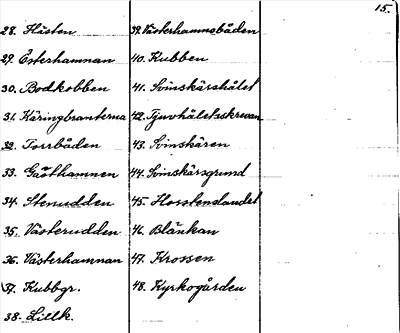 15.
28. Hästen
29. Österhamnan
30. Bodkobben
31. Käringbranterna
32. Torrbåden
33. Gåsthamnen
34. Stenudden
35. Västerudden
36. Västerhamnan
37. Kubbgr.
38. Lillk.
39. Västerhamnsbåden
40. Kubben
41. Svinskärshålet
42. Tjuvhålets
43. Svinskären
44. Svinskärsgrund
45. Hosstenslandet
46. Blänkan
47. Krossen
48. Kyrkogården